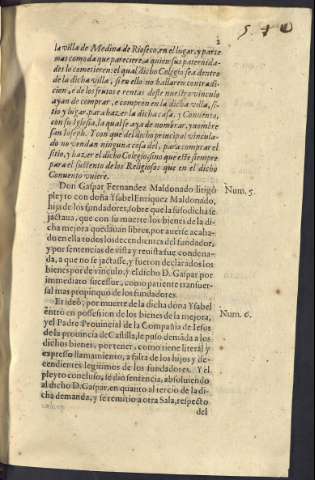 la villa de Medina de Rioseco, en el lugar, y parte
mas comoda que pareciere, a quien sus paternida-
des lo cometieren: el qual dicho Colegio sea dentro
de la dicha villa, si en ello no hallaren contradi-
cion, è de los frutos è rentas deste nuestro vinculo
ayan de comprar, è compren en la dicha villa, si-
tio y lugar, para hazer la dicha casa, y Conuento,
con su Iglesia, la qual se aya de nombrar, y nombre
san Ioseph. Y con que del dicho principal vincula-
do no vendan ninguna cosa del, para comprar el
sitio, y hazer el dicho Colegio sino que esté siempre
para el sustento de los Religiosos que en el dicho
Conuento vuiere.
Don Gaspar Fernandez Maldonado litigò
Num. 5.
pleyto con doña Ysabel Enriquez Maldonado,
hija de los fundadores, sobre que la susodicha se
jactaua, que con su muerte los bienes de la di-
cha mejora quedauan libres, por auerse acaba-
do en ella todos los decendientes del fundador,
y por sentencias de vista y reuista fue condena-
da, a que no se jactasse, y fueron declarados los
bienes por de vinculo, y el dicho D. Gaspar por
immediato sucessor, como pariente transuer-
sal mas propinquo de los fundadores.
Et ideò, por muerte de la dicha doña Ysabel
Num. 6.
entrò en possession de los bienes de la mejora,
y el Padre Prouincial de la Compañia de Iesus
de la prouincia de Castilla, le puso demãda a los
dichos bienes, por tener, como tiene literal y
expresso llamamiento, a falta de los hijos y de-
cendientes legitimos de los fundadores. Y el
pleyto concluso, se dio sentencia, absoluiendo
al dicho D. Gaspar, en quanto al tercio de la di-
cha demanda, y se remitio a otra Sala, respecto
del